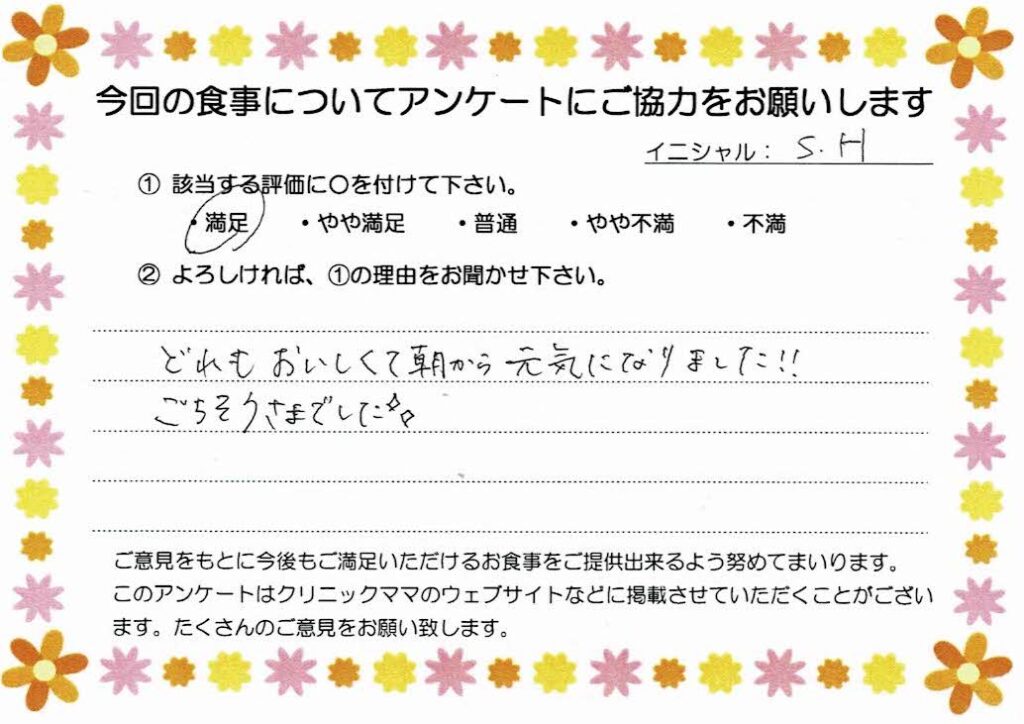 今回の食事についてアンケートにご協力をお願いします
イニシャル： S.H
① 該当する評価に〇を付けて下さい。
・満足 ・やや満足 ・普通 ・やや不満 ・不満
② よろしければ、①の理由をお聞かせ下さい。
どれもおいしくて朝から元気になりました!!
ごちそうさまでした
ご意見をもとに今後もご満足いただけるお食事をご提供出来るよう努めてまいります。
このアンケートはクリニックママのウェブサイトなどに掲載させていただくことがござい
ます。たくさんのご意見をお願い致します。